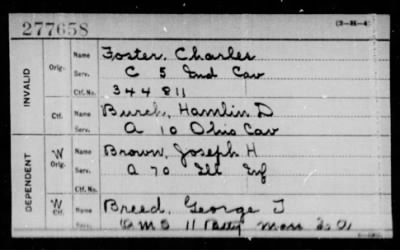 277658
(3-H-4)
INVALID
Orig. Name Foster, Charles
Serv. C 5 Ind Cav
Ctf. No. 344811
Ctf. Name Burch, Hamlin D
Serv. A 10 Ohio Cav
DEPENDENT
W Orig. Name Brown, Joseph H
Serv. A 70 Ill Inf
Ctf. No.
W Ctf. Name Breed, George T
Serv. 11 Batty